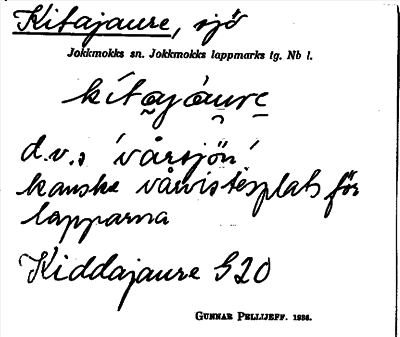 Kitajaure, sjö
Jokkmokks sn. Jokkmokks lappmarks tg. Nb l.
kítạjáurẹ
d.v.s 'vårsjön'
kanske vårvistesplats för
lapparna
Kiddajaure G20
GUNNAR PELLIJEFF. 1936.